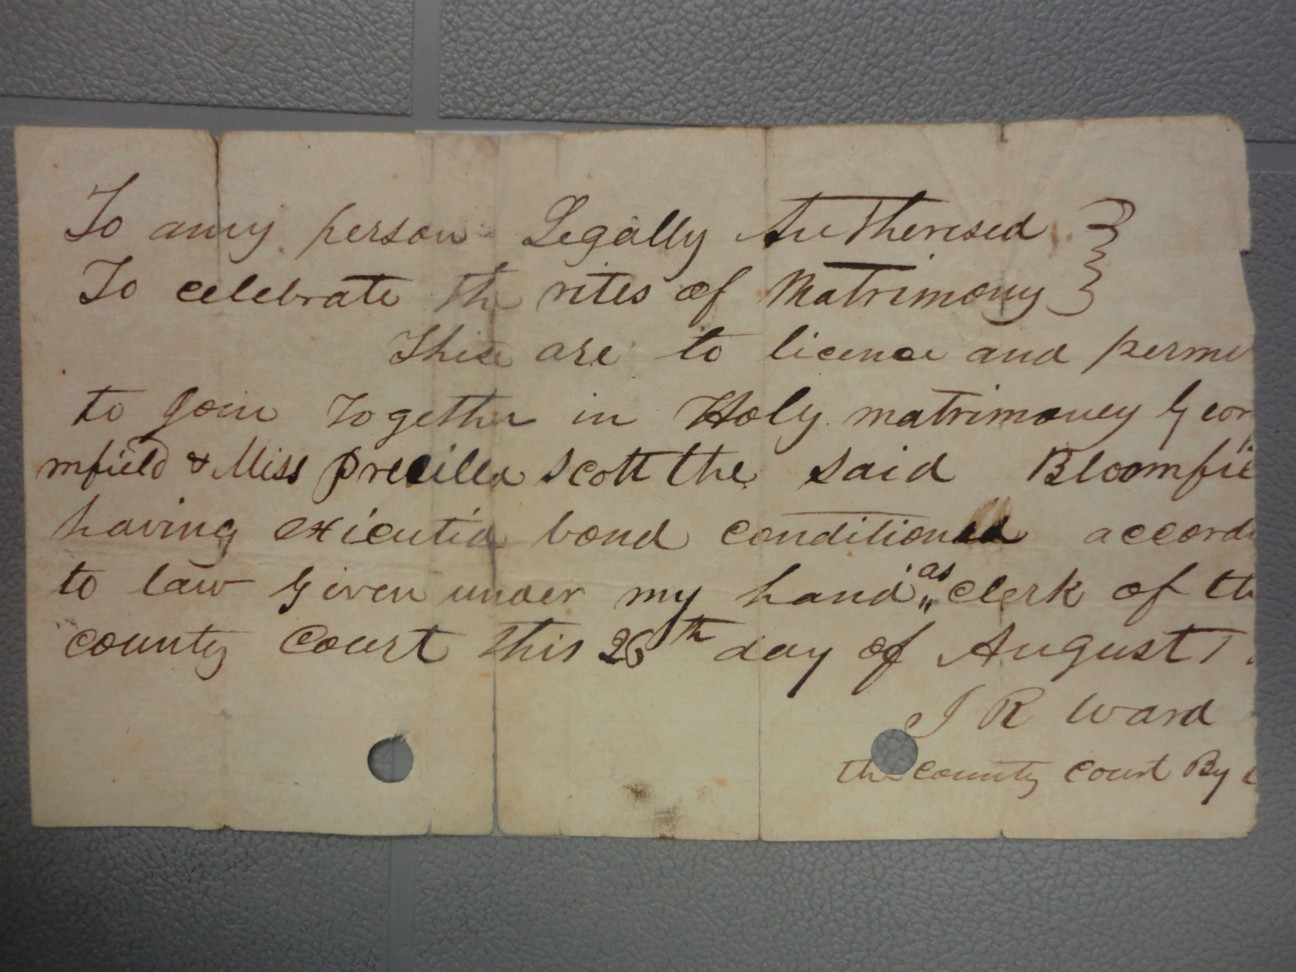 To any person Legally Autherised
To celebrate the rites of Matrimony
This are to licence and permi
to Join Together in Holy matrimoney Geor
mfield & Miss Precilla Scott the said Bloomfie
having executid bond conditioned accordi
to law Given under my hand as clerk of th
county Court this 26th day of August 1
J R Ward
the County Court By